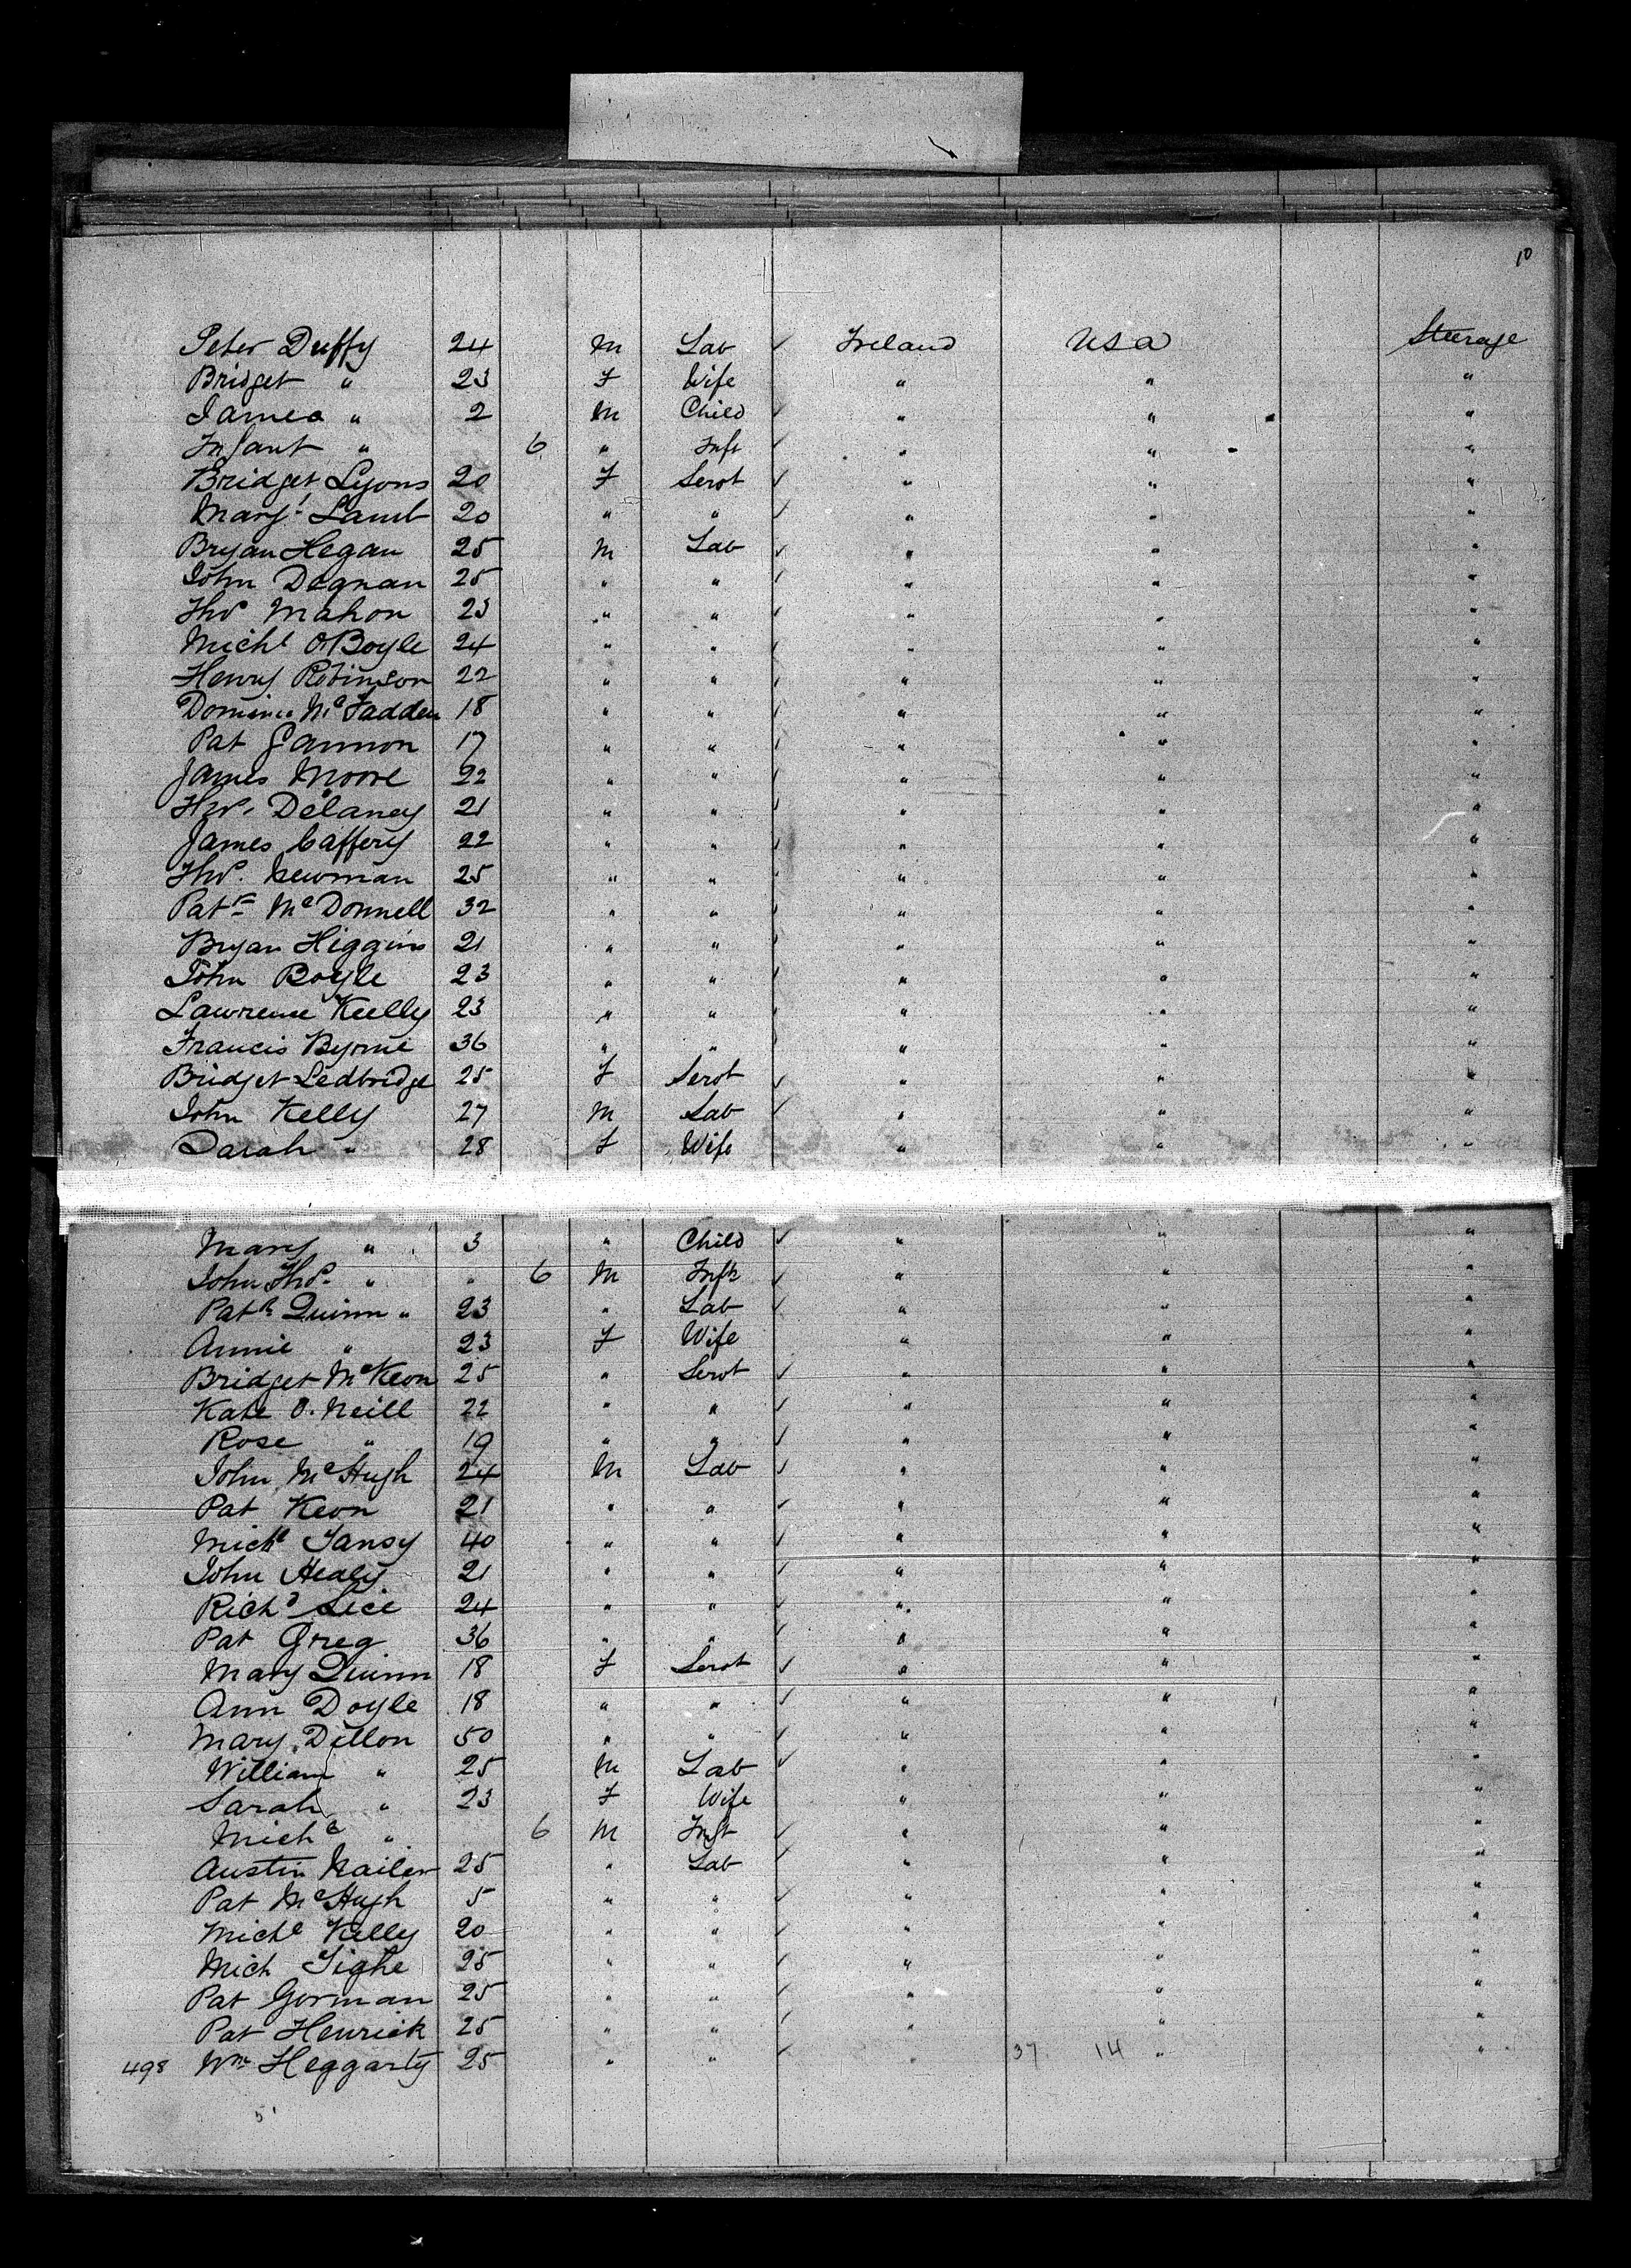 10
Peter Duffy 24 M Lab ✓ Ireland USA Steerage
Bridget " 23 F Wife " " "
James " 2 M Child ✓ " " "
Infant " 6 " Inft ✓ " " "
Bridget Lyons 20 F Servt ✓ " " "
Margt Lamb 20 " " ✓ " " "
Bryan Hegan 25 M Lab ✓ " " "
John Degnan 25 " " ✓ " " "
Thos Mahon 23 " " ✓ " " "
Michl O'Boyle 24 " " ✓ " " "
Henry Robinson 22 " " ✓ " " "
Dominic McFadden 18 " " ✓ " " "
Pat Gannon 17 " " ✓ " " "
James Moore 22 " " ✓ " " "
Thos. Delaney 21 " " ✓ " " "
James Caffery 22 " " ✓ " " "
Thos. Newman 25 " " ✓ " " "
Patk McDonnell 32 " " ✓ " " "
Bryan Higgins 21 " " ✓ " " "
John Boyle 23 " " ✓ " " "
Lawrence Kelly 23 " " ✓ " " "
Francis Byrne 36 " " ✓ " " "
Bridget Ledbridge 25 F Servt ✓ " " "
John Kelly 27 M Lab ✓ " " "
Sarah " 28 F Wife " " "
Mary " 3 " Child ✓ " " "
John Thos " " 6 M Inft ✓ " " "
Patk Quinn " 23 " Lab ✓ " " "
Annie " 23 F Wife " " "
Bridget McKeon 25 " Servt ✓ " " "
Kate O. Neill 22 " " ✓ " " "
Rose " 19 " " ✓ " " "
John McHugh 24 M Lab ✓ " " "
Pat Keon 21 " " ✓ " " "
Michl Tansy 40 " " ✓ " " "
John Healy 21 " " ✓ " " "
Richd 24 " " ✓ " " "
Pat Greg 36 " " ✓ " " "
Mary Quinn 18 F Servt ✓ " " "
Ann Doyle 18 " " ✓ " " "
Mary Dillon 50 " " ✓ " " "
William " 25 M Lab ✓ " " "
Sarah " 23 F Wife " " "
Michl " 6 M Inft ✓ " " "
Austin Nailer 25 " Lab ✓ " " "
Pat McHugh 5 " " ✓ " " "
Michl Kelly 20 " " ✓ " " "
Mich Tighe 25 " " ✓ " " "
Pat Gorman 25 " " ✓ " " "
Pat Henrick 25 " " ✓ " " "
498 Wm Heggarty 25 " " ✓ " 37 14 " "
51